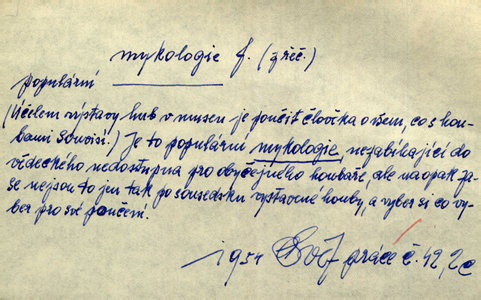 mykologie f. (z řeč.)
populární
(Účelem výstavy hub v museu je poučit člověka o všem, co s hou-
bami souvisí.) Je to populární mykologie, nezabíhající do
vědeckého nedostupna pro obyčejného houbaře, ale naopak za-
se nejsou to jen tak po sousedsku vystavené houby, a vyber si co vy-
ber pro své poučení.
1954 práce č. 42, 2c